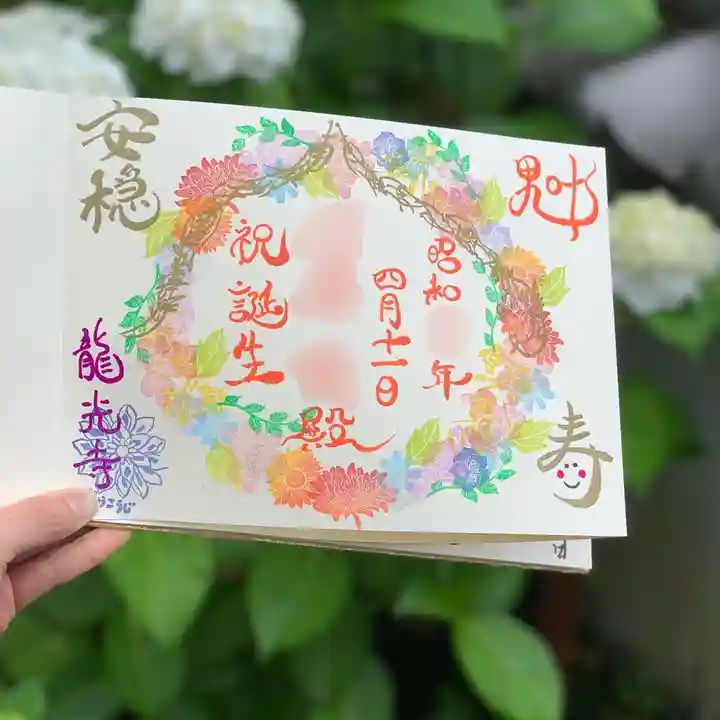 昭和 年
四月十一日
殿
祝誕生
寿
安穏
龍光寺
こうじ